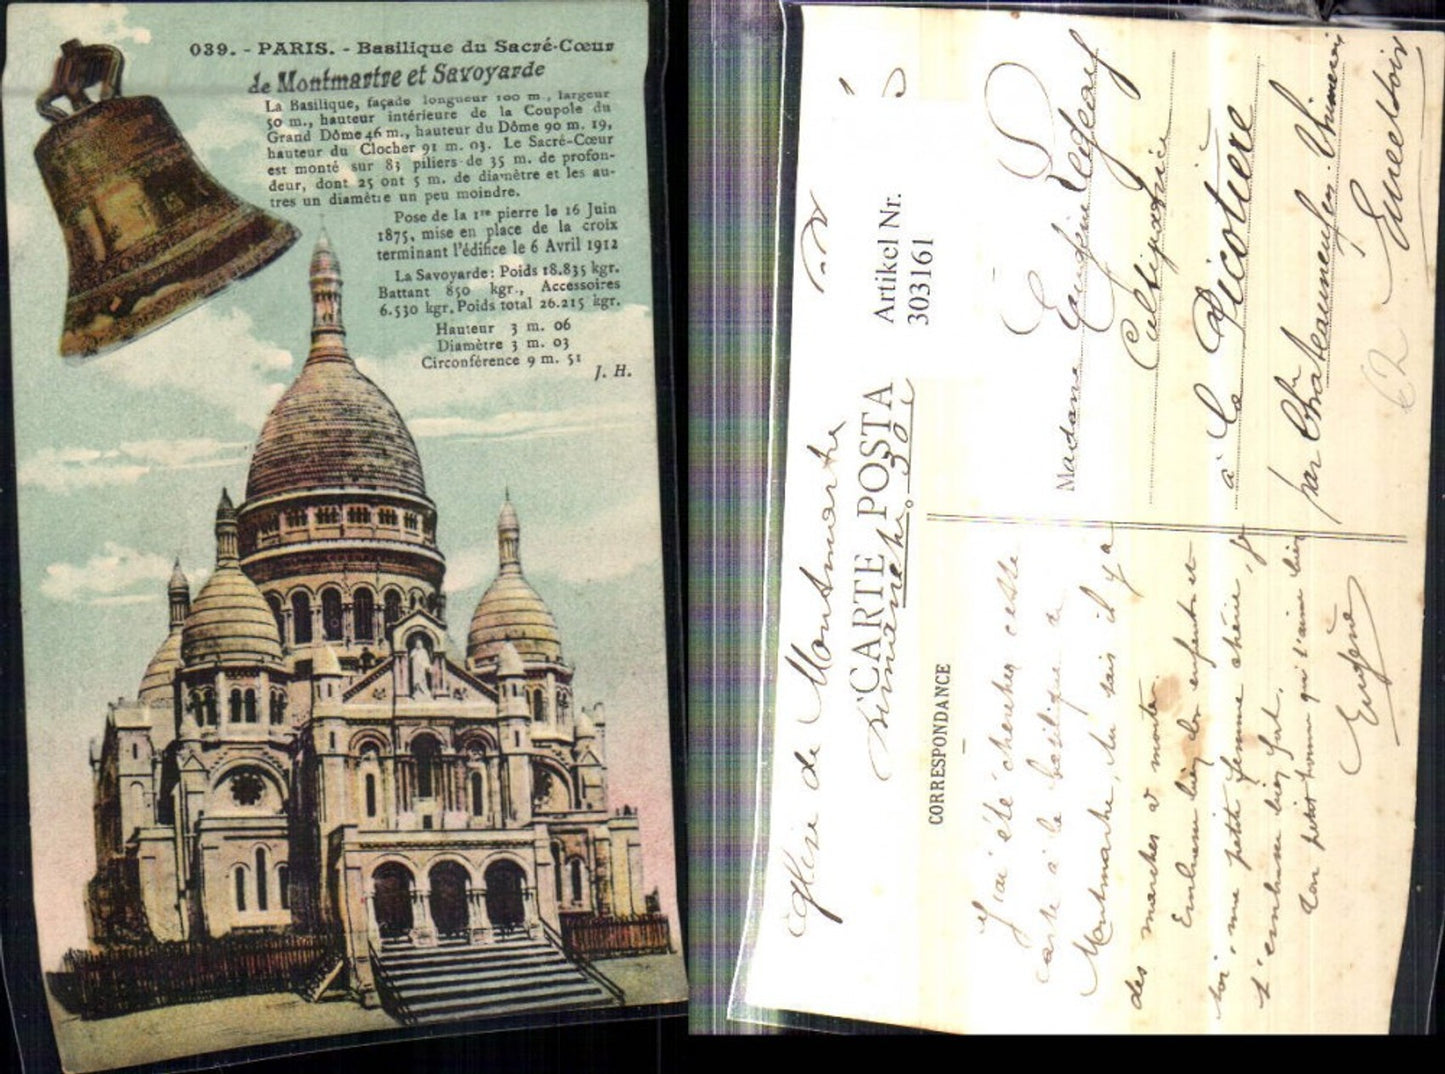 039. - PARIS. - Basilique du Sacré-Cœur
de Montmartre et Savoyarde
La Basilique, façade longueur 100 m., largeur
50 m., hauteur intérieure de la Coupole du
Grand Dôme 46 m., hauteur du Dôme 90 m. 19,
hauteur du Clocher 91 m. 03. Le Sacré-Cœur
est monté sur 83 piliers de 35 m. de profon-
deur, dont 25 ont 5 m. de diamètre et les au-
tres un diamètre un peu moindre.
Pose de la 1re pierre le 16 Juin
1875, mise en place de la croix
terminant l'édifice le 6 Avril 1912
La Savoyarde: Poids 18.835 kgr.
Battant 850 kgr., Accessoires
6.530 kgr. Poids total 26.215 kgr.
Hauteur 3 m. 06
Diamètre 3 m. 03
Circonférence 9 m. 51
J. H.
église de Montmartre
CARTE POSTA
Dimanche 30
Artikel Nr.
303161
CORRESPONDANCE
J'ai été chercher cette
carte à la basilique de
Montmartre, tu sais il y a
des marches à monter.
Embrasse bien les enfants et
toi, ma petite femme chérie, je
t'embrasse bien fort.
Ton petit homme qui t'aime bien
Eugène
Madame Eugène
Cultivatrice
à la Picotière
par Chateauneuf en Thimerais
Eure et Loir
€2